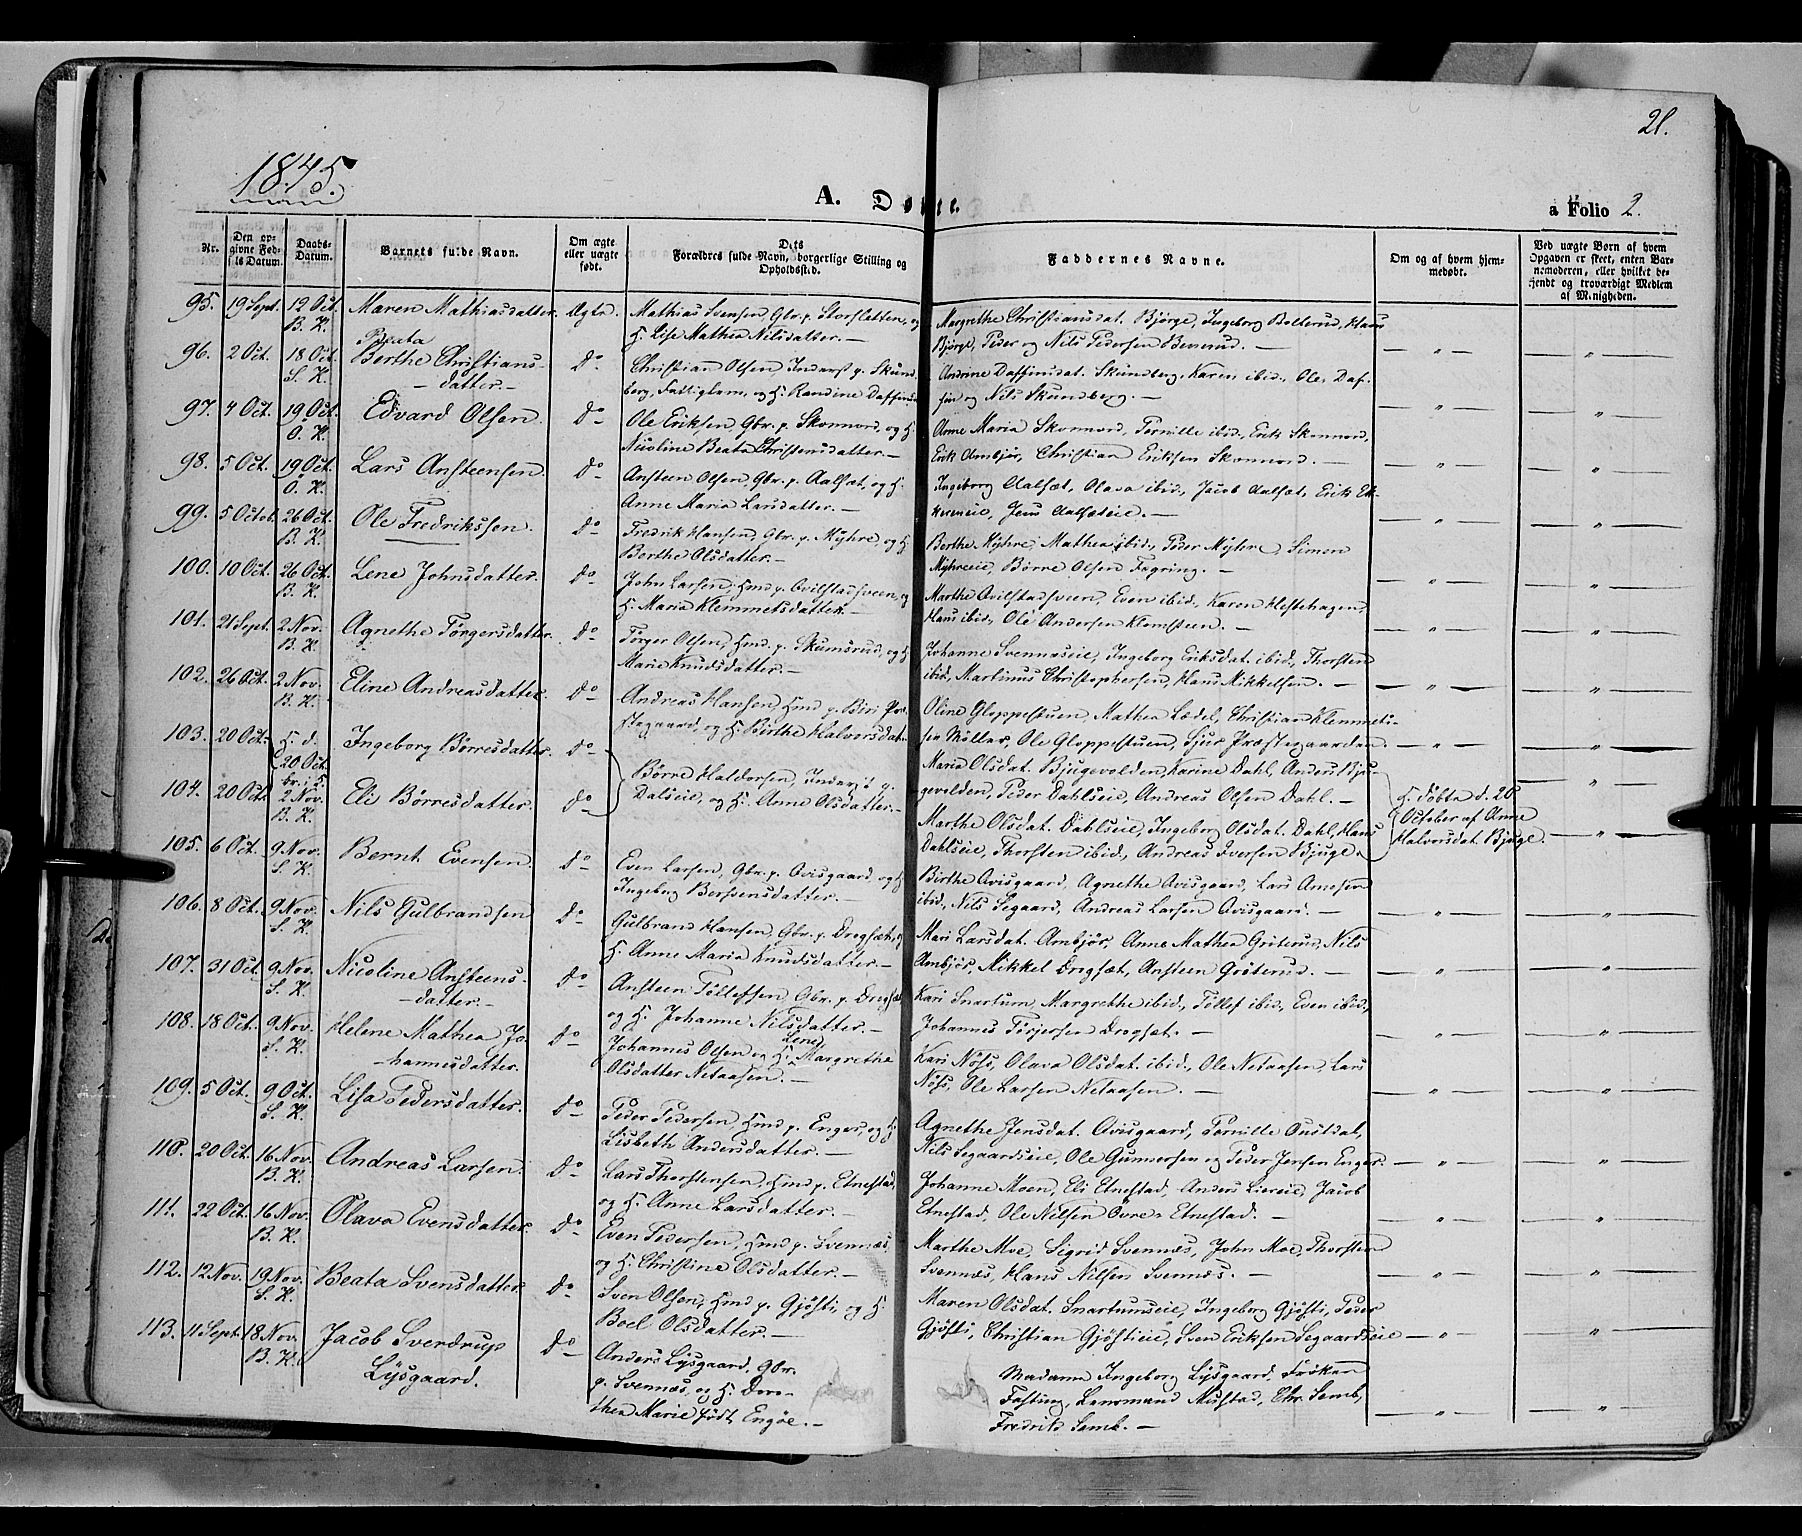 21.
1845.
A. Døbte.
a Folio 2.
Nr.
Den opgivne Fødsels Datum.
Daabs-Datum.
Barnets fulde Navn.
Om ægte eller uægte født.
Dets Forældres fulde Navn, borgerlige Stilling og Opholdssted.
Faddernes Navne.
Om og af hvem hjemmedøbt.
Ved uægte Børn af hvem Opgaven er skeet, enten Barnemoderen, eller hvilket bekjendt og troværdigt Medlem af Menigheden.
95. 19 Sept. 12 Oct. B. K. Maren Mathiasdatter. Ægte. Mathias Svensen, Gbr. p. Storsletten, og
H. Lise Mathea Nilsdatter. —
Margrethe Christiansdat. Bjørge, Ingeborg Bolterud, Hans
Bjørge, Peder og Nils Pedersen Benerud. — — „ — — „ —
96. 2 Oct. 18 Oct. S. K. Beata
Berthe Christians-
datter. — Do Christian Olsen Inderst p. Skund
berg, Fattiglem, og H. Randine Daffins
Andrine Daffinsdat. Skundberg, Karen ibid., Ole Daf-
fin og Nils Skundberg. — — „ — — „ —
97. 4 Oct. 19 Oct. O. K. Edvard Olsen Do Ole Eriksen, Gbr. p. Skonnord, og H.
Nicoline Beata Christensdatter. —
Anne Maria Skonnord, Pernille ibid., Erik Skonnord,
Erik Ambjør, Christian Eriksen Skonnord. — — „ — — „ —
98. 5 Oct. 19 Oct. O. K. Lars Ansteensen Do Ansteen Olsen, Gbr. p. Aalset, og H.
Anne Maria Larsdatter. —
Ingeborg Aalset, Olava ibid., Jacob Aalset, Erik Ek-
kereneie, Jens Aalseteie. — — „ — — „ —
99. 5 Octob. 26 Oct. B. K. Ole Fredriksson. Do Fredrik Hansen, Gbr. p. Myhre, og H.
Berthe Olsdatter. —
Berthe Myhre, Mathea ibid., Peder Myhre, Simon
Myhreeie, Børre Olsen Fagring. — — „ — — „ —
100. 10 Oct. 26 Oct. B. K. Lene Johnsdatter. Do John Larsen, Hmd p. Qvilstadsveen, og
H. Maria Klemmetsdatter. —
Marthe Qvilstadsveen, Even ibid., Karen Hestehagen,
Hans ibid., Ole Andersen Klomsteen. — — „ — — „ —
101. 21 Sept. 2 Nov. B. K. Agnethe Tørgersdatter. Do Tørger Olsen, Hmd p. Skumsrud, og H.
Marie Knudsdatter. —
Johanne Svennæseie, Ingeborg Eriksdat. ibid., Thorsten
ibid., Martinus Christophersen, Hans Mikkelsen. — — „ — — „ —
102. 26 Oct. 2 Nov. B. K. Eline Andreasdatter. Do Andreas Hansen, Hmd p. Biri Præ-
stegaard, og H. Birthe Halvorsdat.
Oline Gloppestuen, Mathea Lædel, Christian Klemmets-
sen Møller, Ole Gloppestuen, Sjur Præstegaarden. — „ — — „ —
103. 20 Oct. H. d. 20 Oct. Ingeborg Børresdatter. Do Børre Haldorsen, Inderst p.
Dalseie, og H. Anne Olsdatter. —
Maria Olsdat. Bjugevolden, Karine Dahl, Anders Bju-
gevolden, Peder Dahlseie, Andreas Olsen Dahl. — H. døbte d. 20
October af Anne
Halvorsdat. Bjuge. — „ —
104. 20 Oct. br. i S. 2 Nov. B. K. Eli Børresdatter. Do
Marthe Olsdat. Dahlseie, Ingeborg Olsdat. Dahl, Hans
Dahlseie, Thorsten ibid., Andreas Iversen Bjuge. — „ —
105. 6 Oct. 9 Nov. S. K. Bernt Evensen. Do Even Larsen, Gbr. p. Qvisgaard, og H.
Ingeborg Berfvensdatter. —
Birthe Qvisgaard, Agnethe Qvisgaard, Lars Arnesen
ibid., Nils Segaard, Andreas Larsen Qvisgaard. — — „ — — „ —
106. 8 Oct. 9 Nov. S. K. Nils Gulbrandsen Do Gulbrand Hansen, Gbr. p. Drogsæt, og
H. Anne Maria Knudsdatter. —
Mari Larsdat. Ambjør, Anne Mathea Griterud, Nils
Ambjør, Mikkel Drogsæt, Ansteen Gröterud. — — „ — — „ —
107. 31 Oct. 9 Nov. S. K. Nicoline Ansteens-
datter. — Do Ansteen Tøllefsen, Gbr. p. Drogsæt
og H. Johanne Nilsdatter. —
Kari Snartum, Margrethe ibid., Tøllef ibid., Even ibid.,
Johannes Törjersen Drogsæt. — — „ — — „ —
108. 18 Oct. 9 Nov. S. K. Helene Mathea Jo-
hannesdatter. Do Johannes Olsen og H. Lene Margrethe
Olsdatter Netaasen. —
Kari Nöss, Olava Olsdat. ibid., Ole Netaasen, Lars
Nöss, Ole Larsen Netaasen. — — „ — — „ —
109. 5 Oct. 9 Oct. S. K. Lisa Pedersdatter. Do Peder Pedersen, Hmd p. Enger, og H.
Lisbeth Andersdatter. —
Agnethe Jensdat. Qvisgaard, Pernille Oustdal,
Nils Segaardseie, Ole Gunnersen og Peder Jensen Enger. — „ — — „ —
110. 20 Oct. 16 Nov. B. K. Andreas Larsen. Do Lars Thorstensen, Hmd p. Etnestad,
og H. Anne Larsdatter. —
Johanne Moen, Eli Etnestad, Anders Liereie, Jacob
Etnestad, Ole Nilsen Övre-Etnestad. — — „ — — „ —
111. 22 Oct. 16 Nov. B. K. Olava Evensdatter. Do Even Pedersen, Hmd p. Svennæs,
og H. Christine Olsdatter. —
Marthe Moe, Sigrid Svennæs, John Moe, Thorsten
Svennæs, Hans Nilsen Svennæs. — — „ — — „ —
112. 12 Nov. 19 Nov. S. K. Beata Svensdatter. Do Sven Olsen, Hmd p. Gjösti, og H.
Boel Olsdatter. —
Maren Olsdat. Snartumseie, Ingeborg Gjösti, Peder
Gjösti, Christian Gjöstieie, Sven Eriksen Segaardseie — „ — — „ —
113. 11 Sept. 18 Nov. B. K. Jacob Sverdrup
Lysgaard. Do Anders Lysgaard, Gbr.
p. Svennæs, og H. Doro-
thea Marie født Engöe. —
Madame Ingeborg Lysgaard, Frøken
Fasting, Lensmand Mustad, Chr. Semb,
Fredrik Semb. — — „ — — „ —